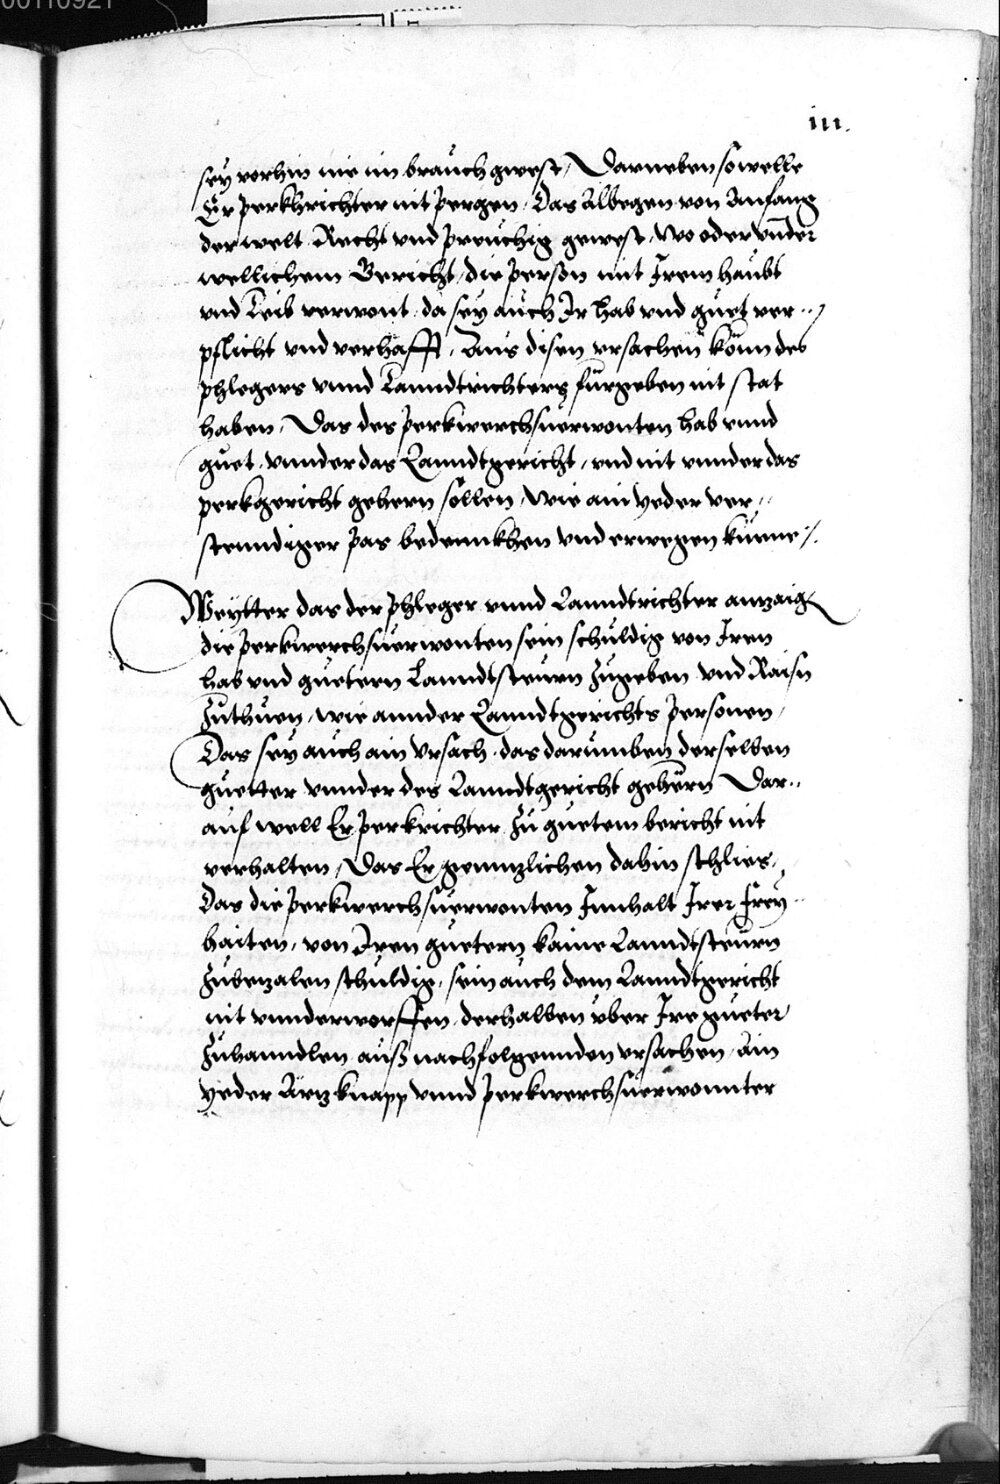 00110921
iii.
sey vorhin nie im brauch gwest, Darneben so welle
Er perkhrichter nit pergen, Das albegen von Anfang
der welt Recht vnd preuchig gewest, wo oder vnder
wellichem Gericht, die person mit Irem haubt
vnd Leib verwont, da sey auch Ir hab vnd guet ver-
pflicht vnd verhafft, Aus disen vrsachen könn des
phlegers vnnd Lanndtrichters fürgeben nit stat
haben, Das des perkwerchsuerwonten hab vnnd
guet, vnnder das Lanndtgericht, vnd nit vnnder das
perkgericht gehern sollen, wie ain yeder ver-
stenndiger pas bedennkhen vnd erwegen kunne /.
Weytter das der phleger vnnd Lanndtrichter anzaig
die perkwerchsuerwonten sein schuldig von Iren
hab vnd guetern Lanndtsteurn zugeben vnd Raisn
zuthuen, wie annder Lanndtgerichts personen,
Das sey auch ain vrsach, das darumben derselben
guetter vnnder des Lanndtgericht gehern Dar-
auf well Er perkrichter zu guetem bericht nit
verhalten, Das Er genntzlichen dahin schlies,
Das die perkwerchsuerwonten Innhalt Irer frey-
haiten, von Iren guetern kaine Lanndtsteurn
zubezalen schuldig, sein auch dem Lanndtgericht
nit vnnderworffen, derhalben vber Ire gueter
zuhanndlen auß nachfolgennden vrsachen, ain
yeder Artzknapp vnnd perkwerchsuerwonnter